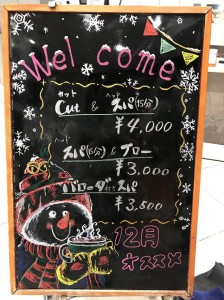 Welcome
カット ヘッド
Cut & スパ(15分)
¥4,000
ヘッド
スパ(15分) & ブロー
¥3,000
¥3,500
12月
オススメ